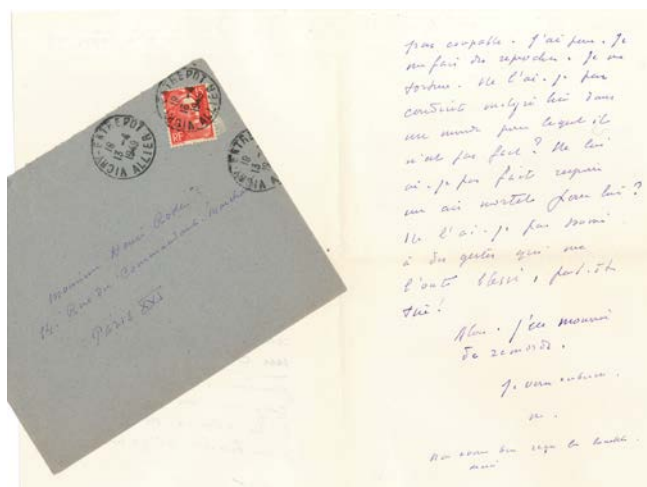 VICHY-ENTREPOT ALLIER
18
13 -4
1949
RF
Monsieur Henri
14. Rue du Commandant
PARIS XVI
pas coupable. J'ai peur. Je
me fais des reproches. Je me
torture. Ne l'ai-je pas
conduit malgré lui dans
un monde pour lequel il
n'est pas fait ? Ne lui
ai-je pas fait respirer
un air mortel pour lui ?
Ne l'ai-je pas
à des gestes qui me
l'ont blessé, peut-être
tué !
Alors. j'en mourrai
de remords.
Je vous embrasse.